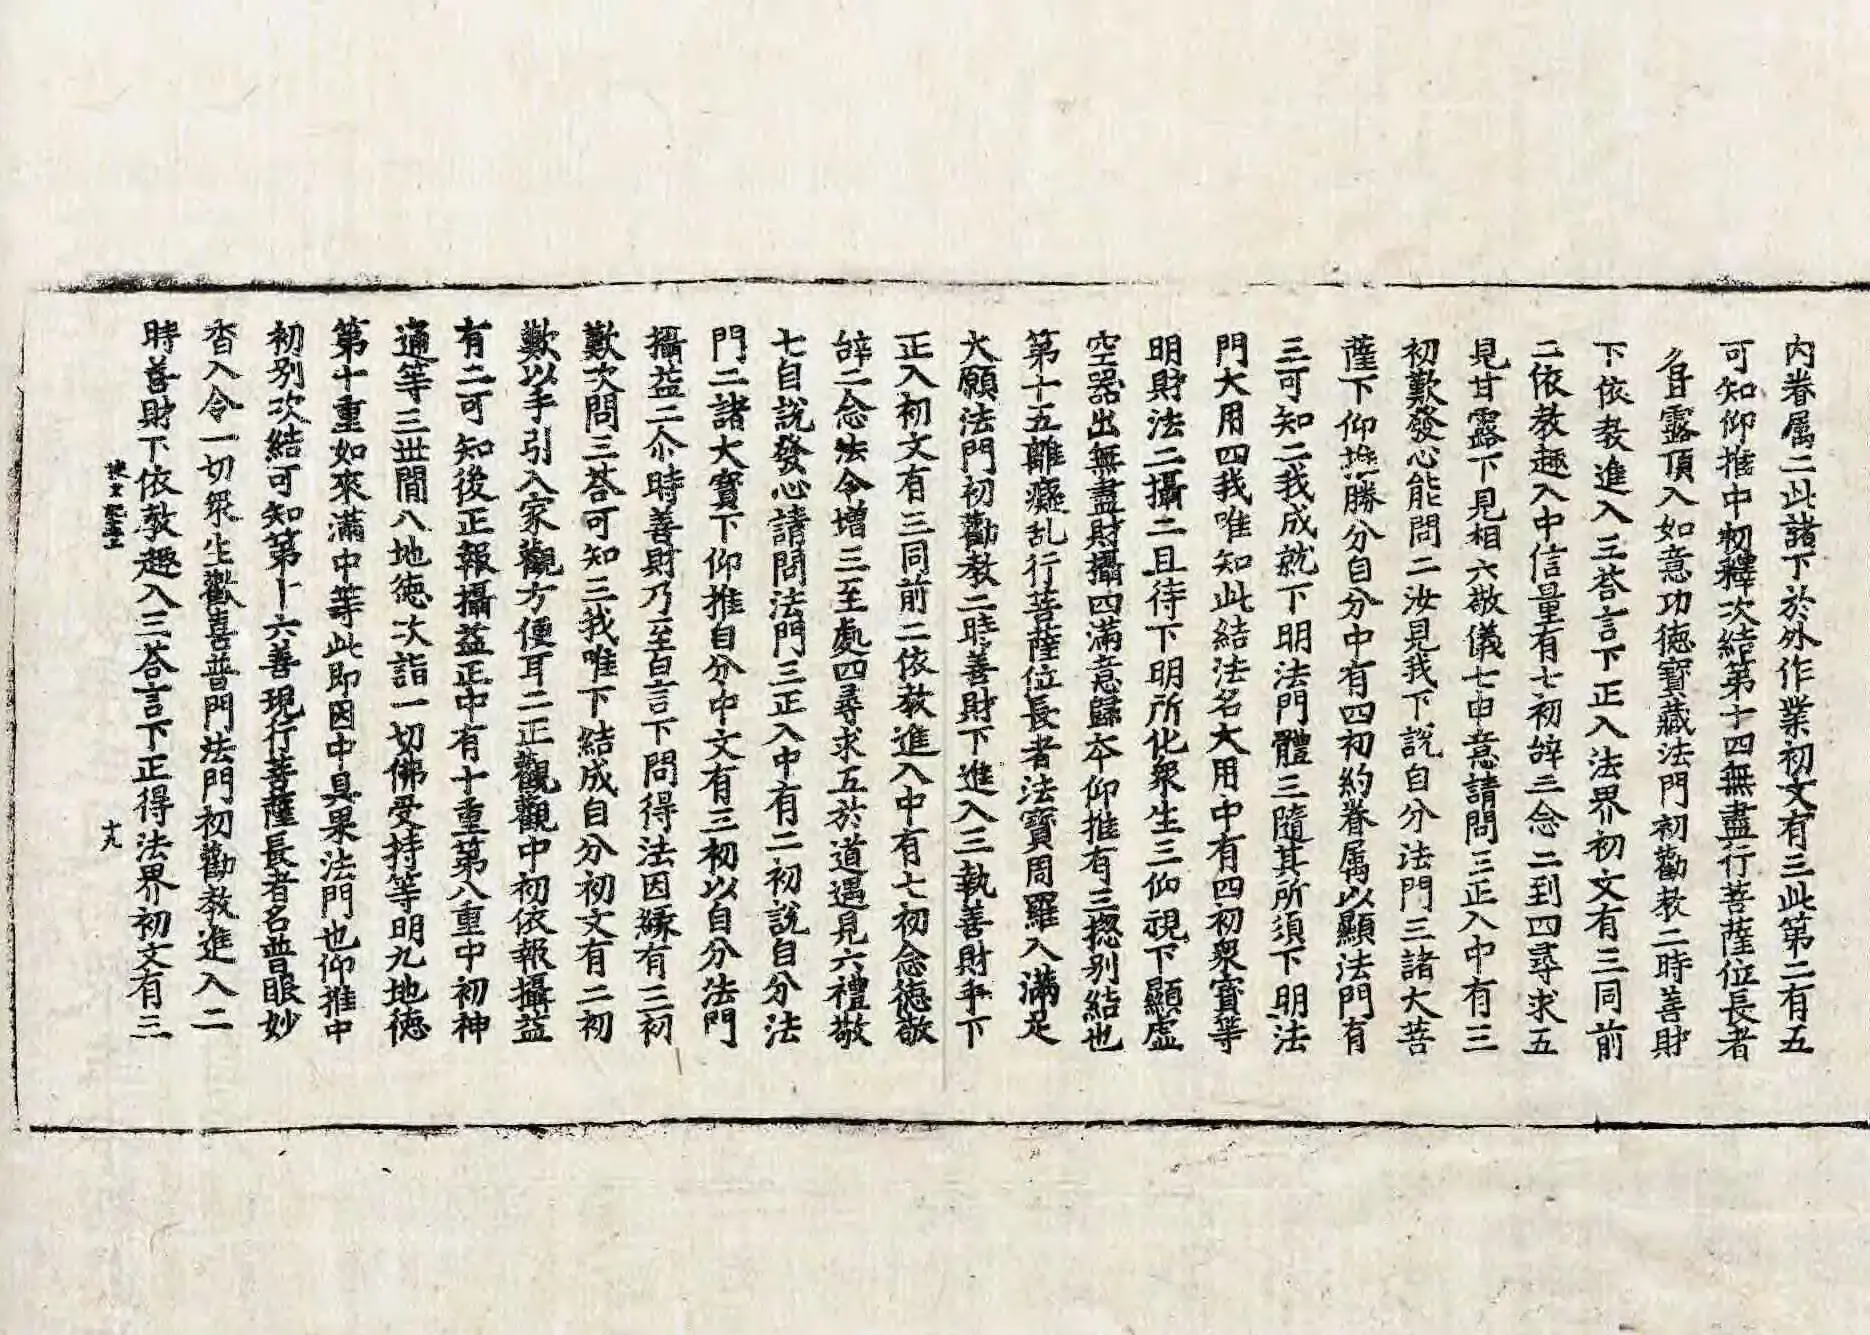 内眷属二此諸下於外作業初文有三此第二有五
可知仰推中初釋次結第十四無盡行菩薩位長者
名甘露頂入如意功徳寶藏法門初勸教二時善財
下依教進入三荅言下正入法界初文有三同前
二依教趣入中信量有七初辝三念二到四尋求五
見甘露下見相六敬儀七申意請問三正入中有三
初歎發心能問二汝見我下說自分法門三諸大菩
薩下仰推勝分自分中有四初約眷属以顯法門有
三可知二我成就下明法門體三隨其所須下明法
門大用四我唯知此結法名大用中有四初衆寶等
明財法二攝二且待下明所化衆生三仰視下顯虛
空器出無盡財攝四滿意歸夲仰推有三揔别結也
第十五離癡乱行菩薩位長者法寶周羅入滿足
大願法門初勸教二時善財下進入三執善財手下
正入初文有三同前二依教進入中有七初念徳敬
辝二念法令增三至處四尋求五於道遇見六禮敬
七自說發心請問法門三正入中有二初說自分法
門二諸大寶下仰推自分中文有三初以自分法門
攝益二尒時善財乃至白言下問得法因緣有三初
歎次問三荅可知三我唯下結成自分初文有二初
歎以手引入家觀方便耳二正觀觀中初依報攝益
有二可知後正報攝益正中有十重第八重中初神
通等三世間八地徳次詣一切佛受持等明九地徳
第十重如來滿中等此即因中具果法門也仰推中
初别次結可知第十六善現行菩薩長者名普眼妙
香入令一切衆生歡喜普門法門初勸教進入二
時善財下依教趣入三荅言下正得法界初文有三
十九